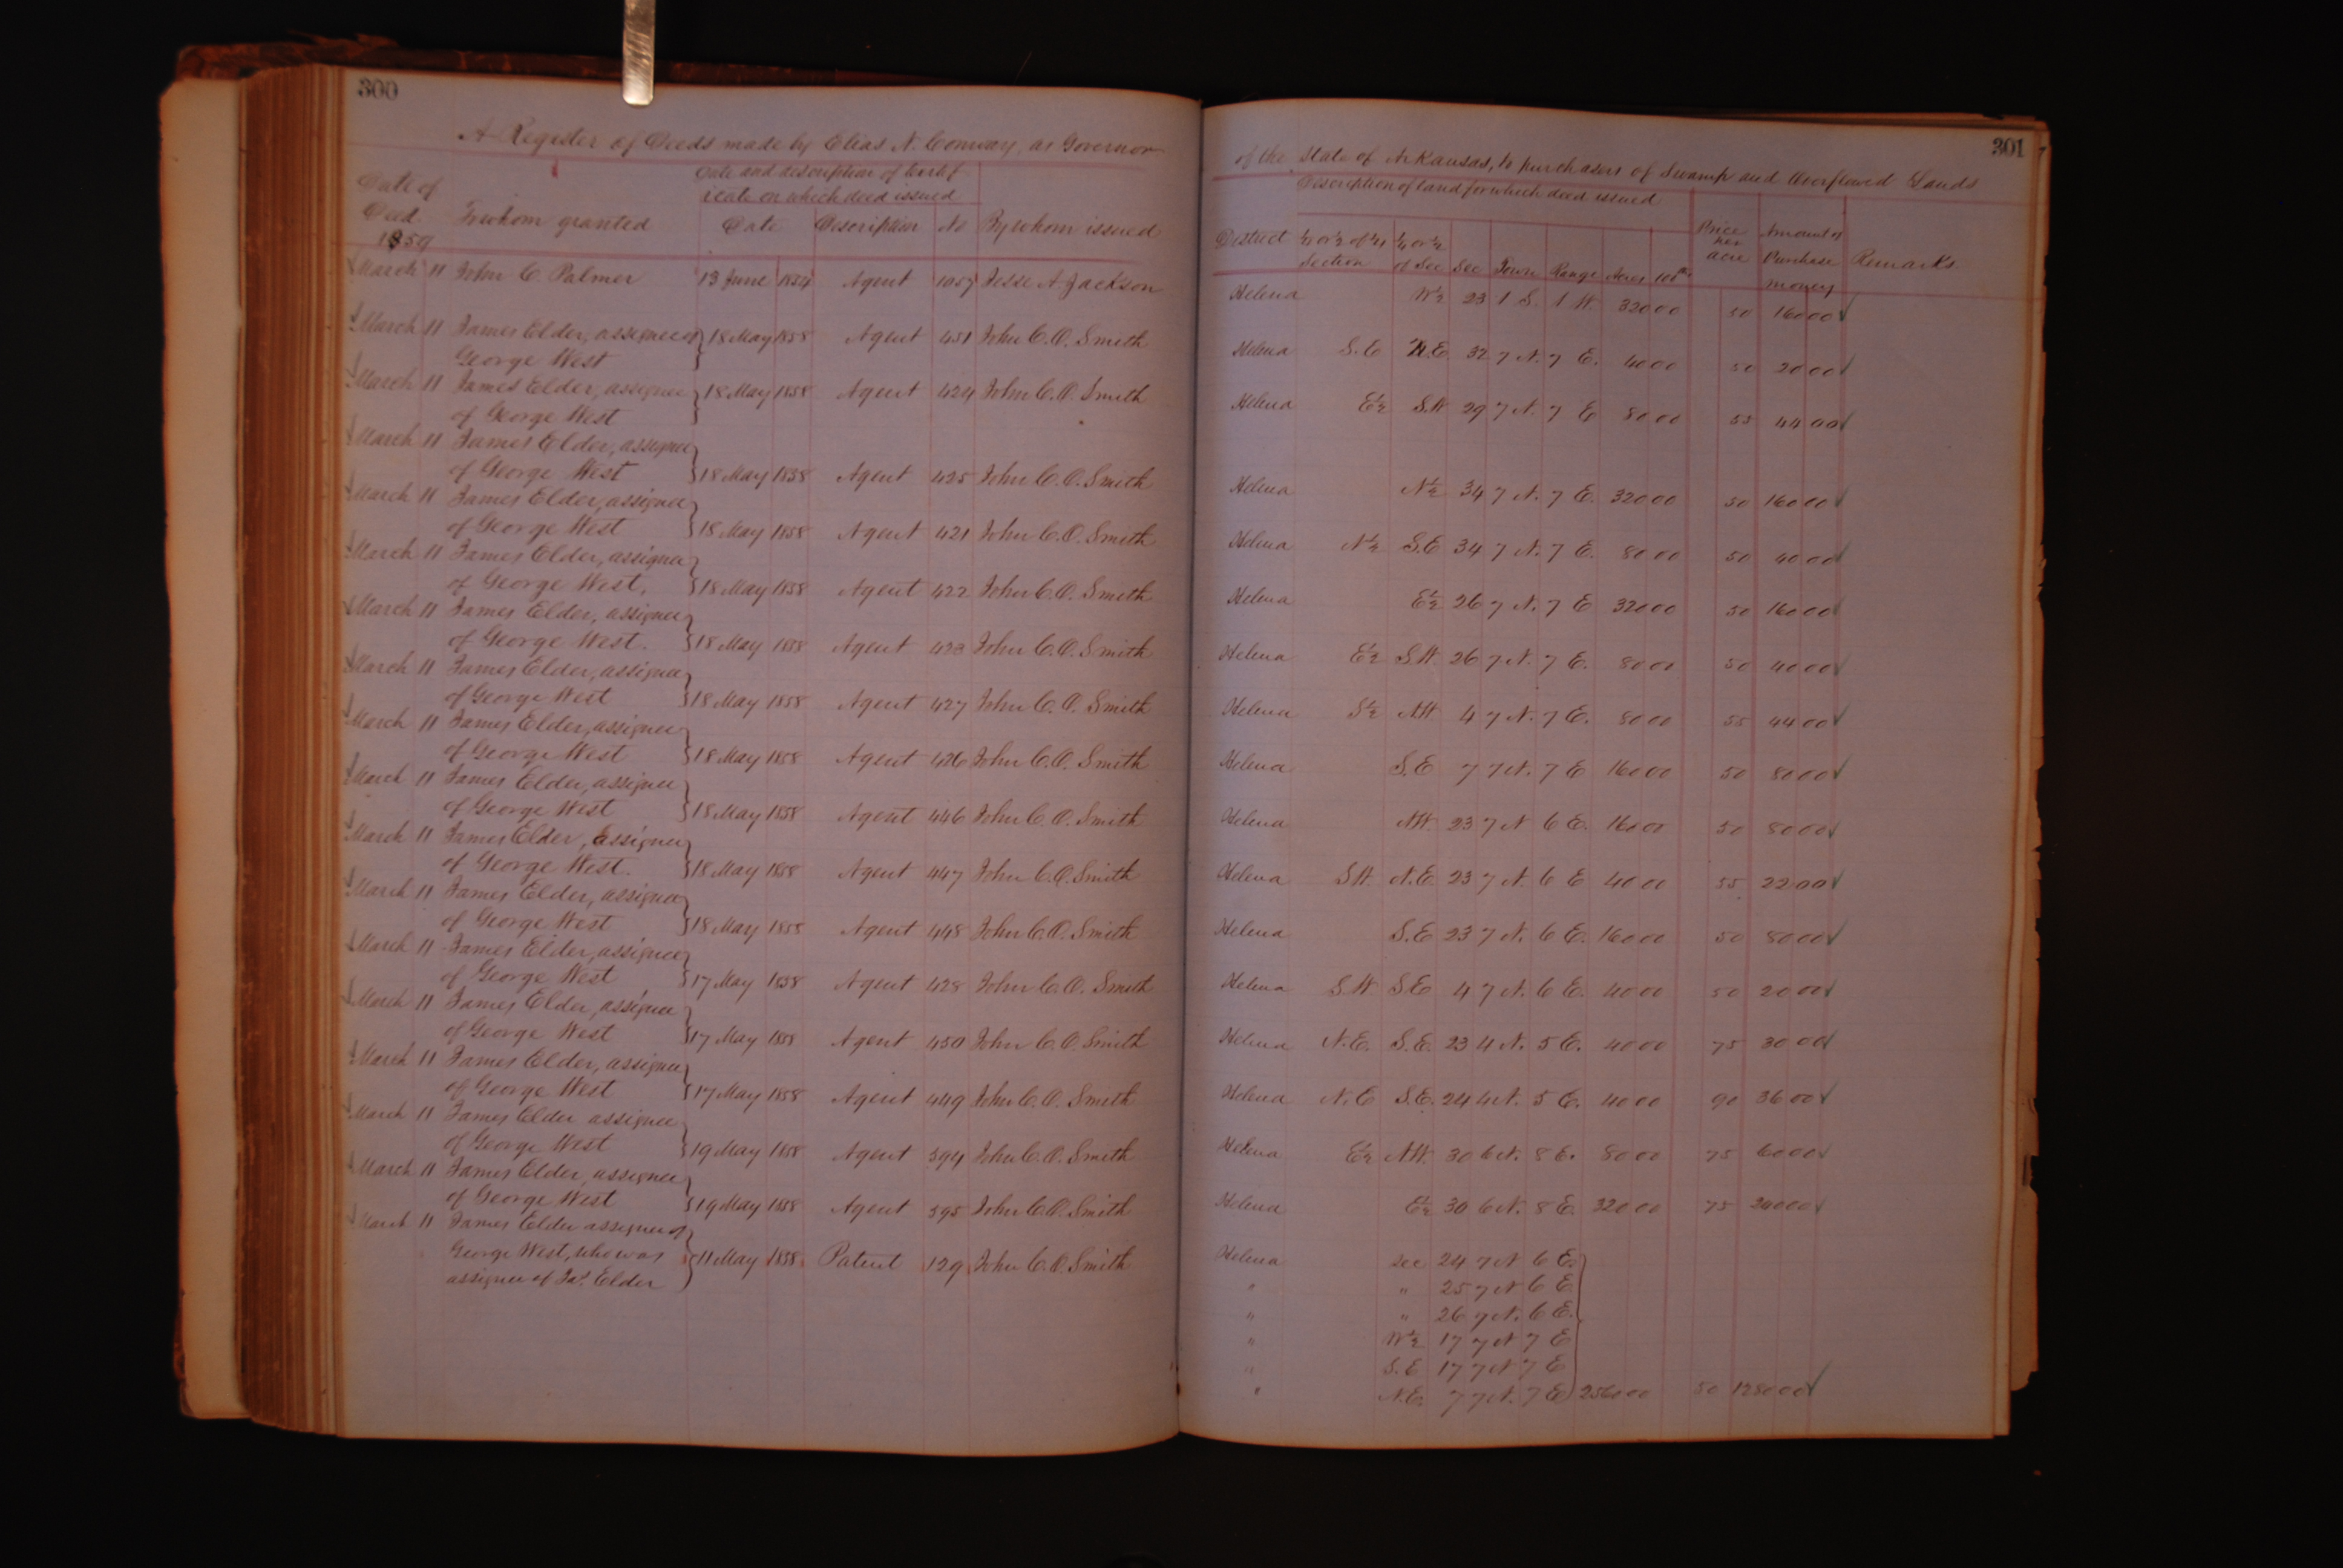 300
A Register of Deeds made by Elias N. Conway, as Governor
Date of Deed. 1859 To whom granted Date and description of Certificate on which deed issued Date Description No By whom issued
March 11 John C. Palmer 13 June 1854 Agent 1057 Jesse A Jackson
March 11 James Elder, assignee of
George West 18 May 1858 Agent 451 John C.O. Smith
March 11 James Elder, assignee
of George West 18 May 1858 Agent 424 John C.O. Smith
March 11 James Elder, assignee
of George West 18 May 1858 Agent 425 John C.O. Smith
March 11 James Elder, assignee
of George West 18 May 1858 Agent 421 John C.O. Smith
March 11 James Elder, assignee
of George West, 18 May 1858 Agent 422 John C.O. Smith
March 11 James Elder, assignee
of George West. 18 May 1858 Agent 423 John C.O. Smith
March 11 James Elder, assignee
of George West 18 May 1858 Agent 427 John C.O. Smith
March 11 James Elder, assignee
of George West 18 May 1858 Agent 426 John C.O. Smith
March 11 James Elder, assignee
of George West 18 May 1858 Agent 446 John C.O. Smith
March 11 James Elder, assignee
of George West. 18 May 1858 Agent 447 John C.O. Smith
March 11 James Elder, assignee
of George West 18 May 1858 Agent 448 John C.O. Smith
March 11 James Elder, assignee
of George West 17 May 1858 Agent 428 John C.O. Smith
March 11 James Elder, assignee
of George West 17 May 1858 Agent 450 John C.O. Smith
March 11 James Elder, assignee
of George West 17 May 1858 Agent 449 John C.O. Smith
March 11 James Elder assignee
of George West 19 May 1858 Agent 394 John C.O. Smith
March 11 James Elder, assignee
of George West 19 May 1858 Agent 395 John C.O. Smith
March 11 James Elder assignee of
George West, who was
assignee of Jas. Elder 11 May 1858 Patent 129 John C.O. Smith
301
of the State of Arkansas, to purchasers of Swamp and Overflowed Lands
Description of land for which deed issued
District ¼ or ½ of ¼ Section ¼ or ½ of Sec Sec Town Range Acres 100ths Price per acre Amount of Purchase money Remarks
Helena W½ 23 1 S. 1 W. 320 00 50 160 00
Helena S.E N.E 32 7 N. 7 E. 40 00 50 20 00
Helena E½ S.W 29 7 N. 7 E 80 00 55 44 00
Helena N½ 34 7 N. 7 E. 320 00 50 160 00
Helena N½ S.E 34 7 N. 7 E. 80 00 50 40 00
Helena E½ 26 7 N. 7 E 320 00 50 160 00
Helena E½ S.W. 26 7 N. 7 E. 80 00 50 40 00
Helena S½ N.W 4 7 N. 7 E. 80 00 55 44 00
Helena S.E 7 7 N. 7 E 160 00 50 80 00
Helena N.W. 23 7 N 6 E. 160 00 50 80 00
Helena S.W. N.E 23 7 N. 6 E 40 00 55 22 00
Helena S.E 23 7 N. 6 E. 160 00 50 80 00
Helena S.W. S.E 4 7 N. 6 E. 40 00 50 20 00
Helena N.E. S.E. 23 4 N. 5 E. 40 00 75 30 00
Helena N.E S.E. 24 4 N. 5 E. 40 00 90 36 00
Helena E½ N.W. 30 6 N. 8 E. 80 00 75 60 00
Helena E½ 30 6 N. 8 E. 320 00 75 240 00
Helena Sec 24 7 N 6 E.
" " 25 7 N 6 E
" " 26 7 N. 6 E.
" W½ 17 7 N 7 E
" S.E 17 7 N 7 E
" N.E. 7 7 N. 7 E 2560 00 50 1280 00